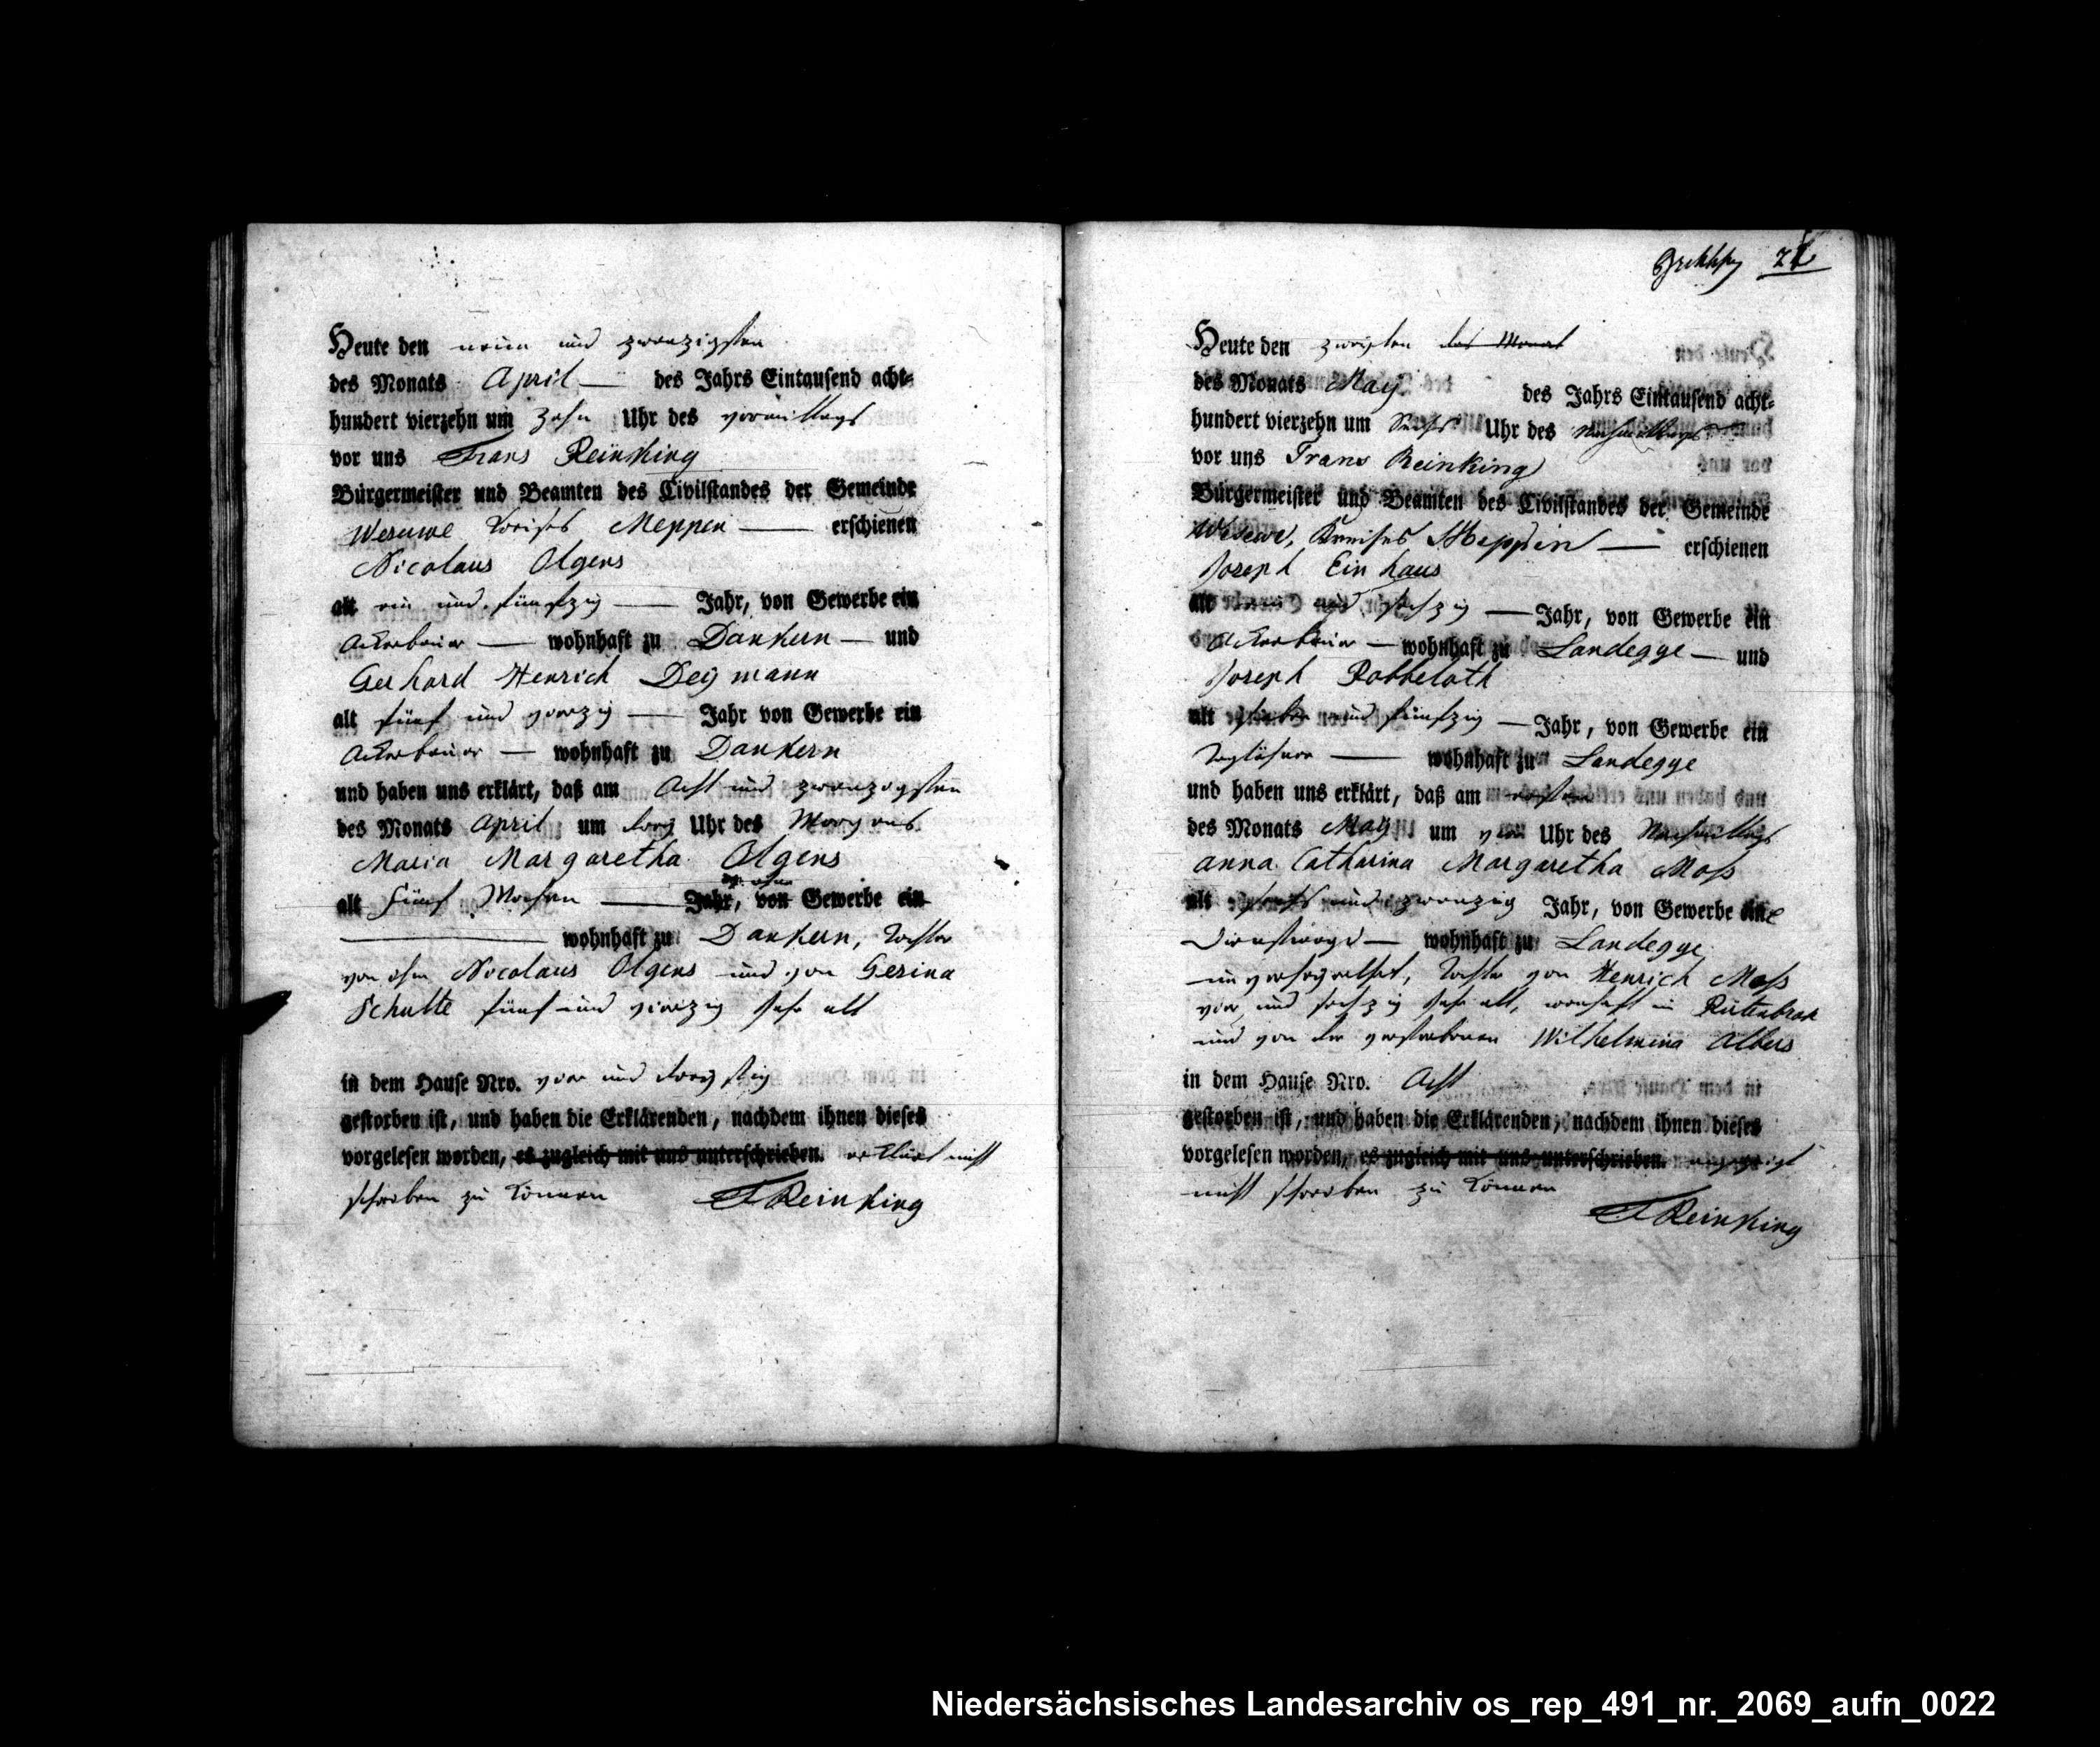 Heute den neun und zwanzigsten
des Monats April des Jahrs Eintausend acht-
hundert vierzehn um zehn Uhr des vormittags
vor uns Frans Reinking
Bürgermeister und Beamten des Civilstandes der Gemeinde
Wesuwe Kreises Meppen erschienen
Nicolaus Olgens
alt ein und fünfzig Jahr, von Gewerbe ein
Ackerbauer wohnhaft zu Dankern und
Gerhard Henrich Deymann
alt fünf und vierzig Jahr von Gewerbe ein
Ackerbauer wohnhaft zu Dankern
und haben uns erklärt, daß am Acht und zwanzigsten
des Monats April um drey Uhr des Morgens
Maria Margaretha Olgens
alt fünf Wochen Jahr, von ohne Gewerbe ein
wohnhaft zu Dankern, Tochter
von ihm Nicolaus Olgens und von Gesina
Schulte fünf und vierzig Jahr alt
in dem Hause Nro. vier und dreyssig
gestorben ist, und haben die Erklärenden, nachdem ihnen dieses
vorgelesen worden, es zugleich mit uns unterschrieben. erklärt nicht
schreiben zu können FReinking
22
Heute den zweyten des Monat
des Monats May des Jahrs Eintausend acht-
hundert vierzehn um Sechs Uhr des Nachmittags
vor uns Frans Reinking
Bürgermeister und Beamten des Civilstandes der Gemeinde
Wesuwe, Kreises Meppen erschienen
Joseph Einhaus
alt und sechzig Jahr, von Gewerbe ein
Ackerbauer wohnhaft zu Landegge und
Joseph Robbeloth
alt sieben und fünfzig Jahr, von Gewerbe ein
Taglöhner wohnhaft zu Landegge
und haben uns erklärt, daß am ersten
des Monats May um vier Uhr des Nachmittags
Anna Catharina Margaretha Moss
alt sechs und zwanzig Jahr, von Gewerbe eine
Dienstmagd wohnhaft zu Landegge
unverheyrathet, Tochter von Henrich Moss
vier und sechzig Jahr alt, wonhaft in Rütenbrok
und von der verstorbenen Wilhelmina Albers
in dem Hause Nro. Acht
gestorben ist, und haben die Erklärenden, nachdem ihnen dieses
vorgelesen worden, es zugleich mit uns unterschrieben. angezeigt
nicht schreiben zu können
FReinking
Niedersächsisches Landesarchiv os_rep_491_nr._2069_aufn_0022